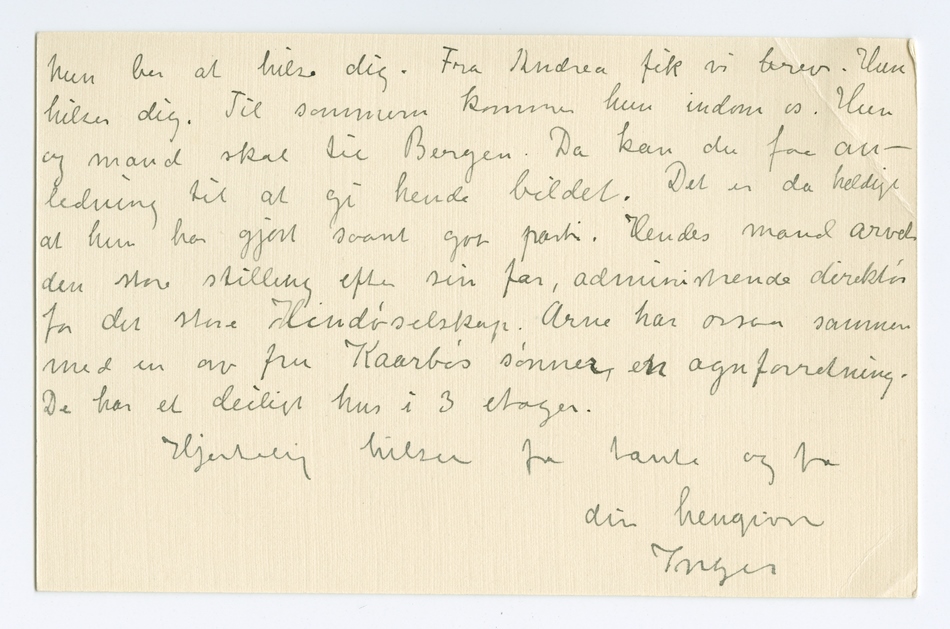 hun ber at hilse dig. Fra Andrea fik vi brev. Hun
hilser dig. Til sommeren kommer hun indom os. Hun
og mand skal til Bergen. Da kan du faa an-
ledning til at gi hende bildet. Det er da heldigt
at hun har gjort saant got parti. Hendes mand arvet
den store stilling efter sin far, administrende direktør
for det store Hindøselskap. Arne har ossaa sammen
med en av fru Kaarbøs sønner, en agnforretning.
De har et deiligt hus i 3 etager.
Hjertelig hilsen fra tante og fra
din hengivne
Inger